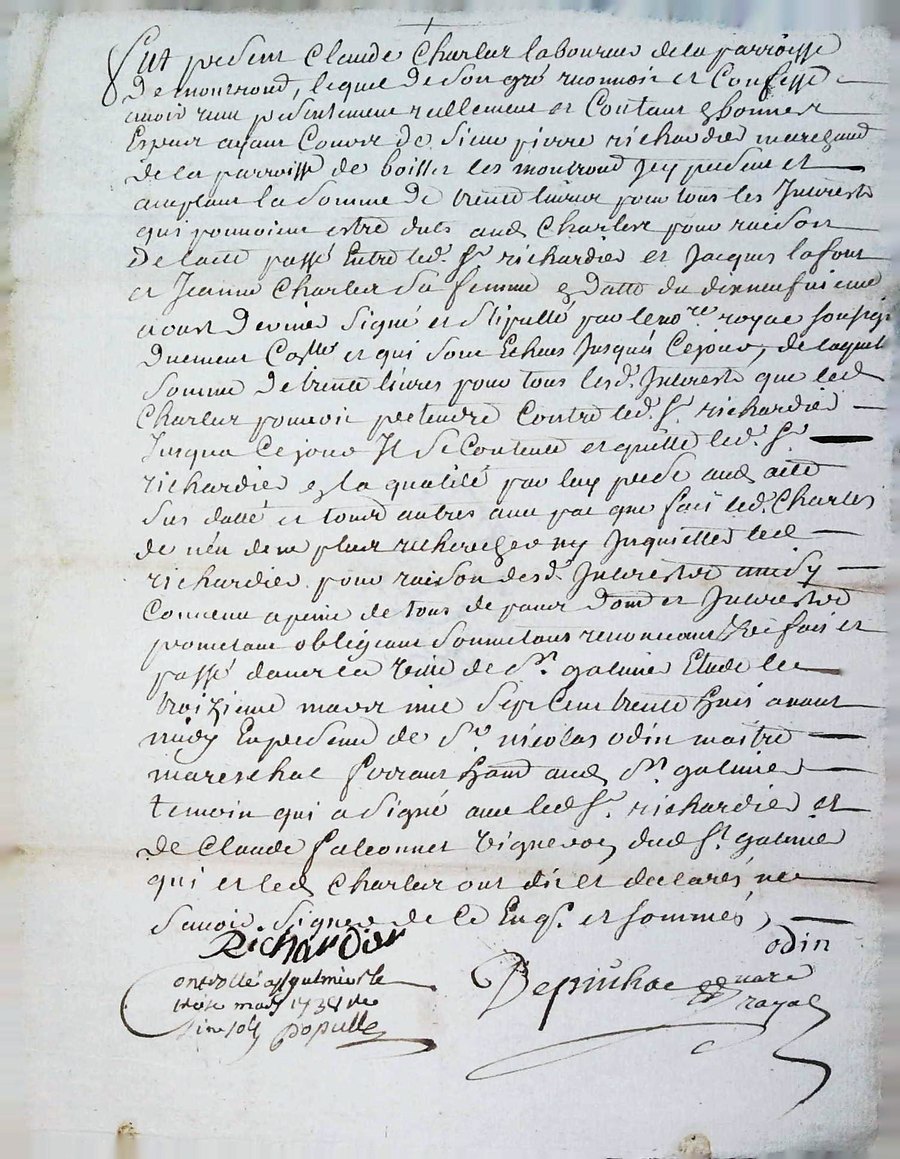 Fut present Claude Charles laboureur de la parroisse
De montrond, lequel de son gré reconnoit et Confesse
avoir reçu presentement reellement et Contant en bonnes
Especes ayant Cours de Sieur pierre richardier marchand
de la parroisse de boisset les montrond Icy present et
acceptant la Somme De trente livres pour tous les Interests
qui pouvoient estre dues aud Charles pour raison
De lacte passé Entre led. Sr richardier et Jacques lafont
et Jeanne Charles Sa femme en datte du dixneufvieme
aoust Dernier Signé et Stipullé par le nore royal soussigné
Duement Collé et qui sont Echeus Jusqués Cejour, de laquelle
Somme De trente livres pour tous lesd. Interests que led
Charles pouvoit pretendre Contre led. Sr richardier
Jusqua Cejour Il Se Contente et quitte led. Sr
richardier en la qualité par luy prise aud acte
Sus datté et tous autres avec pac que fait led. Charles
de nen De plus rechercher ny Inquietter led
richardier pour raison desd. Interests ainsy
Convenu a peine de tous depans Dom et Interests
prometant obligeant Soumetant renonceant &c fait et
passé dans la Ville de St. galmier Etude le
troizieme mars mil Sept Cent trente huit avant
midy En presence de Sr. nicolas odin maitre
mareschal ferrant hand aud St galmier
temoin qui a Signé avec led Sr. richardier et
De Claude falconnet Vigneron dud St galmier
qui et led Charles ont dit et declarés ne
Savoir Signer de Ce Enqs. et Sommés,
Richardier odin
Controllé a St galmier le
trois mars 1738 re
Six sols Populle
Depinhac nore
Royal